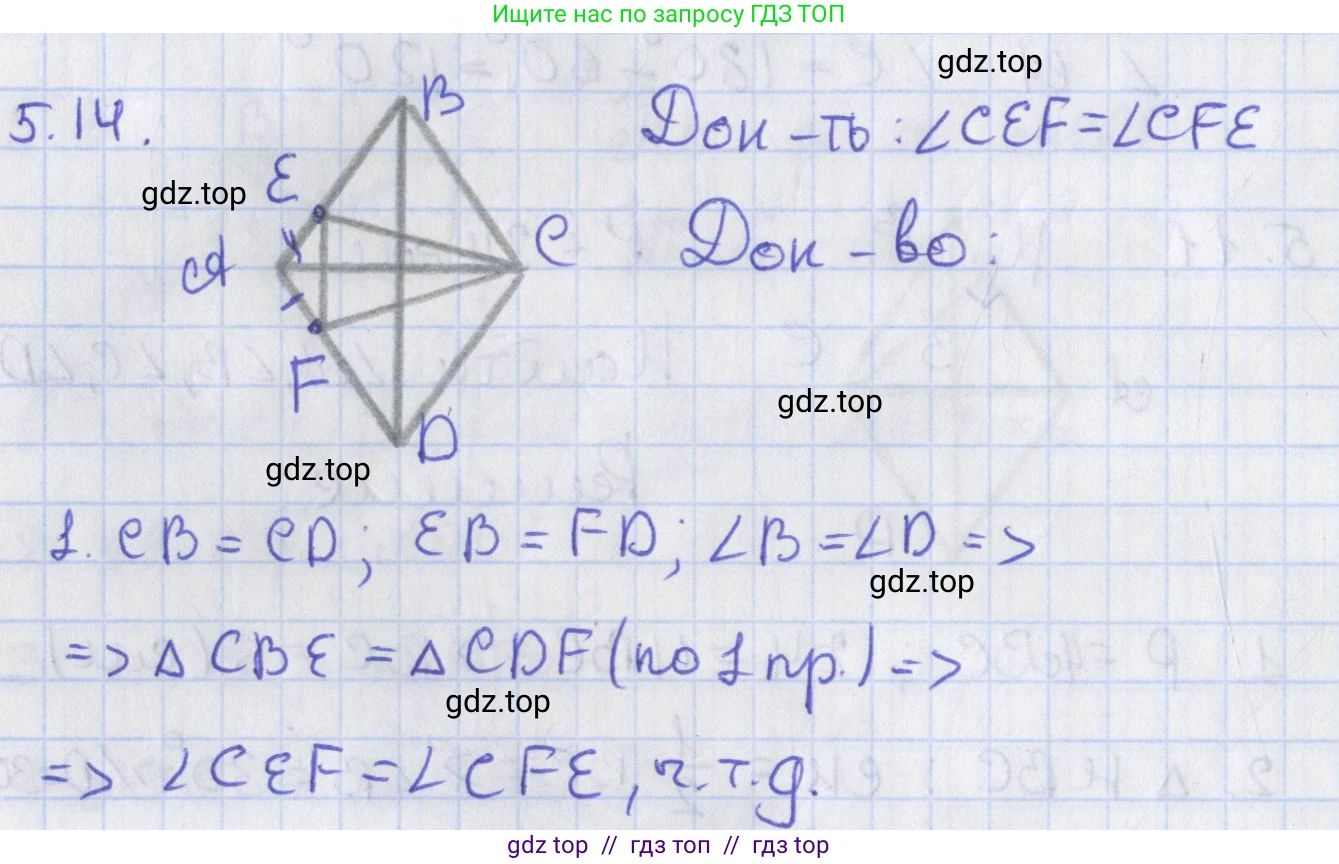 Ищите нас по запросу ГДЗ ТОП
gdz.top
5.14.
B
Док-ть: ∠CEF=∠CFE
E
gdz.top
C
Док-во:
A
F
gdz.top
D
gdz.top
1. CB = CD; EB = FD; ∠B = ∠D =>
gdz.top
=> △ CBE = △ CDF (по 1 пр.) =>
gdz.top
=> ∠CEF = ∠CFE, ч.т.д.
gdz.top // гдз топ // гдз топ